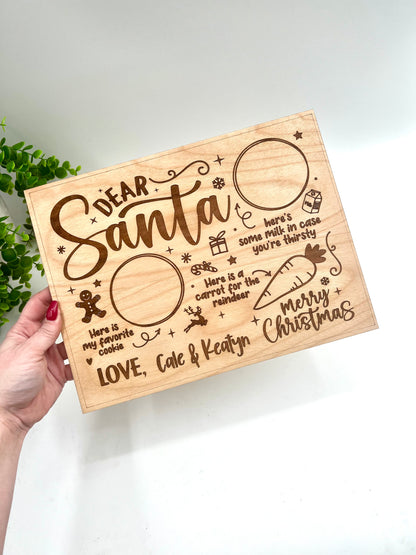 DEAR
Santa
here's
some milk in case
you're thirsty
Here is a
carrot for the
reindeer
Here is
my favorite
cookie
merry
Christmas
LOVE, Cale & Keatyn